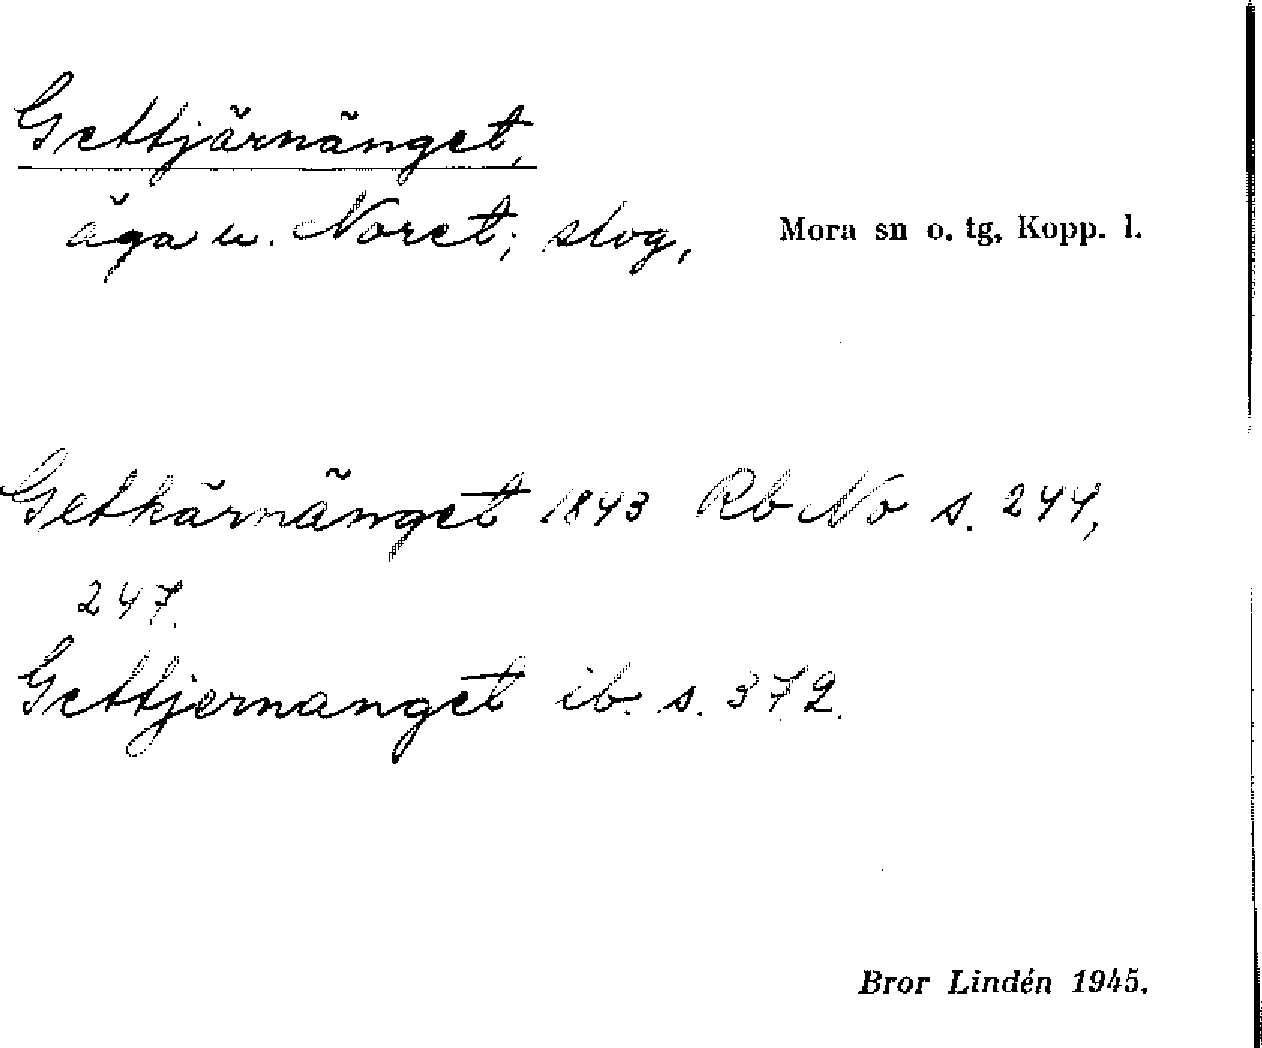 Gettjärnänget,
äga u. Noret; slog, Mora sn o. tg, Kopp. l.
Getkärnänget 1843 Rb No s. 244,
247.
Gettjernanget ib. s. 372.
Bror Lindén 1945.